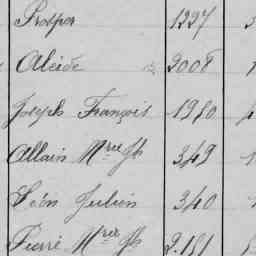 Prosper 1227
Alcide 2008
Joseph François 1980
Allain Mree Jh 349
Léon Julien 340
Pierre Mree Jh 2.151